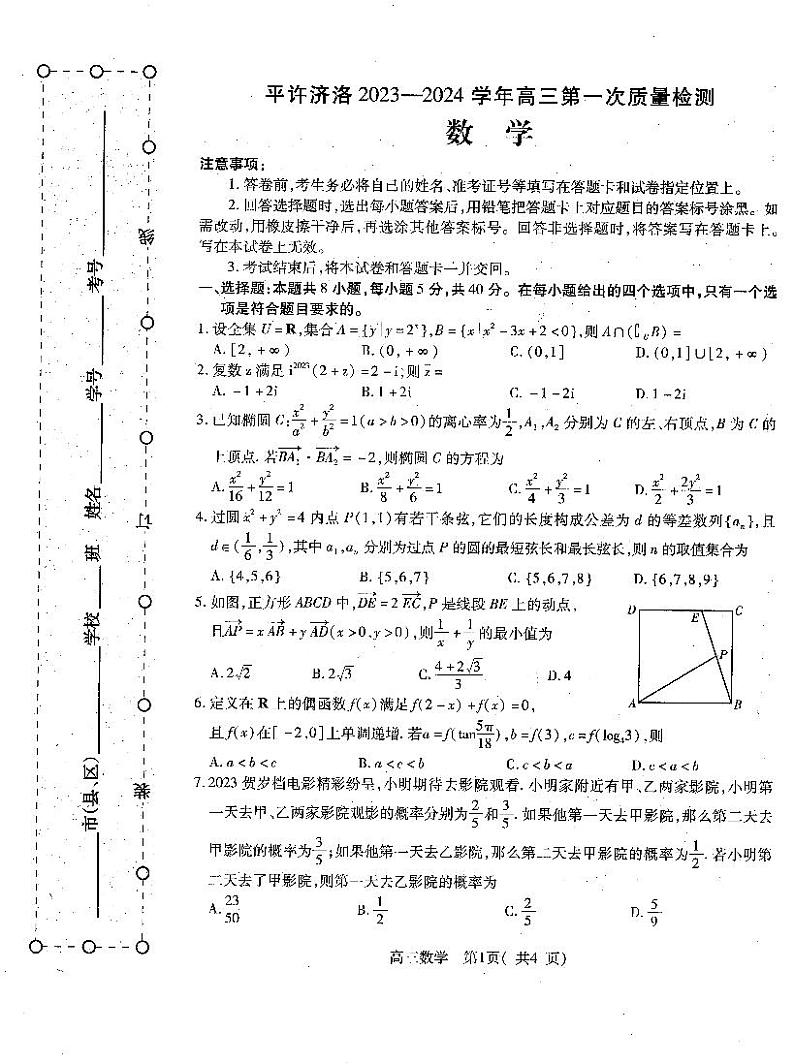 平许济洛 2023—2024 学年高三第一次质量检测
数 学
注意事项：
1. 答卷前,考生务必将自己的姓名、准考证号等填写在答题卡和试卷指定位置上。
2. 回答选择题时,选出每小题答案后,用铅笔把答题卡上对应题目的答案标号涂黑。如
需改动,用橡皮擦干净后,再选涂其他答案标号。回答非选择题时,将答案写在答题卡上。
写在本试卷上无效。
3. 考试结束后,将本试卷和答题卡一并交回。
一、选择题:本题共 8 小题,每小题 5 分,共 40 分。在每小题给出的四个选项中,只有一个选
项是符合题目要求的。
1. 设全集 U = R,集合 A = {y | y = 2ˣ},B = {x | x² − 3x + 2 < 0},则 A∩(∁ᵤB) =
A. [2, + ∞ ) B. (0, + ∞ ) C. (0,1] D. (0,1]∪[2, + ∞ )
2. 复数 z 满足 i²⁰²³(2 + z) = 2 − i,则 z̄ =
A. −1 + 2i B. 1 + 2i C. −1 − 2i D. 1 − 2i
3. 已知椭圆 C: x²/a² + y²/b² = 1(a > b > 0)的离心率为 1/2,A₁,A₂ 分别为 C 的左、右顶点,B 为 C 的
上顶点. 若 BA₁ · BA₂ = −2,则椭圆 C 的方程为
A. x²/16 + y²/12 = 1 B. x²/8 + y²/6 = 1 C. x²/4 + y²/3 = 1 D. x²/2 + 2y²/3 = 1
4. 过圆 x² + y² = 4 内点 P(1,1)有若干条弦,它们的长度构成公差为 d 的等差数列{aₙ},且
d ∈ (1/6, 1/3),其中 a₁,aₙ 分别为过点 P 的圆的最短弦长和最长弦长,则 n 的取值集合为
A. {4,5,6} B. {5,6,7} C. {5,6,7,8} D. {6,7,8,9}
5. 如图,正方形 ABCD 中,DE = 2 EC,P 是线段 BE 上的动点,
且 AP = x AB + y AD(x > 0,y > 0),则 1/x + 1/y 的最小值为
A. 2√2 B. 2√3 C. (4 + 2√3)/3 D. 4
D E C
P
A B
6. 定义在 R 上的偶函数 f(x)满足 f(2 − x) + f(x) = 0,
且 f(x)在[ −2,0]上单调递增. 若 a = f(tan 5π/18),b = f(3),c = f(log₄3),则
A. a < b < c B. a < c < b C. c < b < a D. c < a < b
7. 2023 贺岁档电影精彩纷呈,小明期待去影院观看. 小明家附近有甲、乙两家影院,小明第
一天去甲、乙两家影院观影的概率分别为 2/5 和 3/5. 如果他第一天去甲影院,那么第二天去
甲影院的概率为 3/5;如果他第一天去乙影院,那么第二天去甲影院的概率为 1/2. 若小明第
二天去了甲影院,则第一天去乙影院的概率为
A. 23/50 B. 1/2 C. 2/5 D. 5/9
高三数学 第1页( 共4 页)
市(县、区) 学校 班 姓名 学号 考号
装 订 线